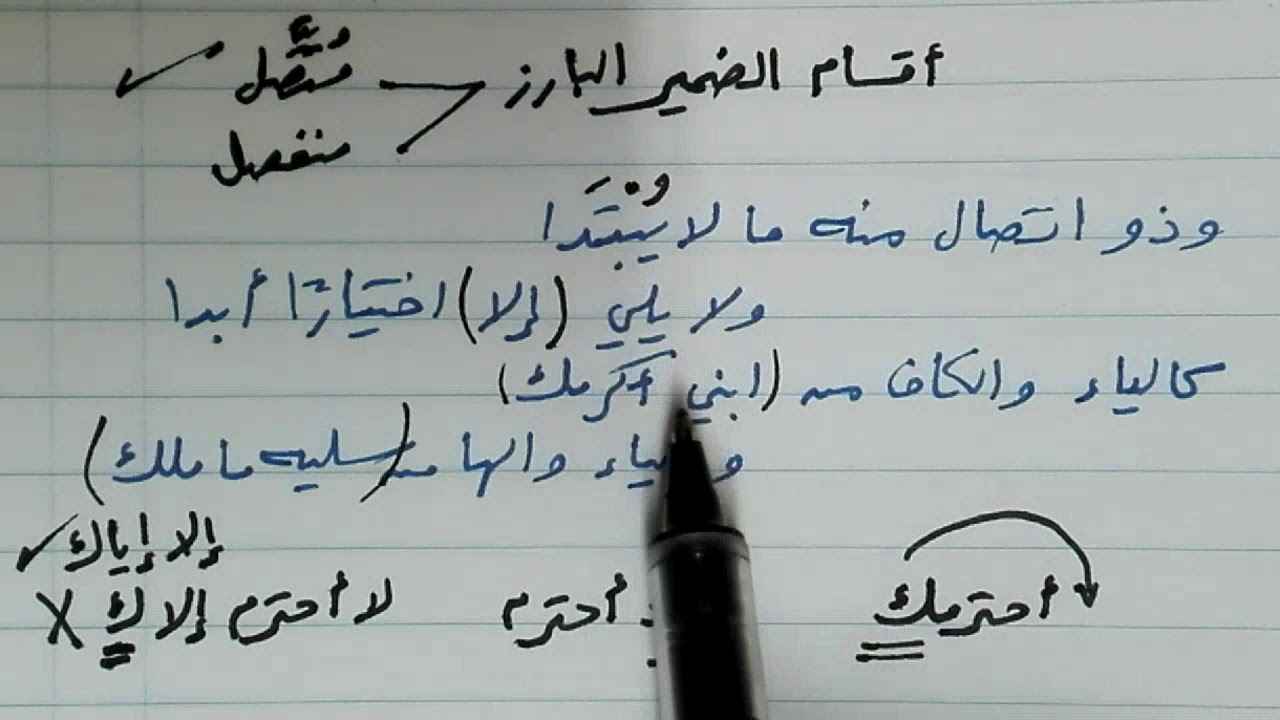 أقسام الضمير البارز
مُتَّصل ✓
منفصل
وذو اتصال منه ما لا يُبْتَدا
ولا يلي (إلا) اختيارًا أبدا
كالياء والكاف من (ابني أكرمك)
والياء والها من (سليه ما ملك)
إلا إياك ✓
أحترمك
: أحترم
لا أحترم إلا ك X